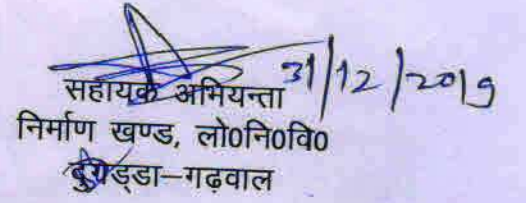 सहायक अभियन्ता 31/12/2019
निर्माण खण्ड, लो0नि0वि0
दुगड्डा–गढ़वाल